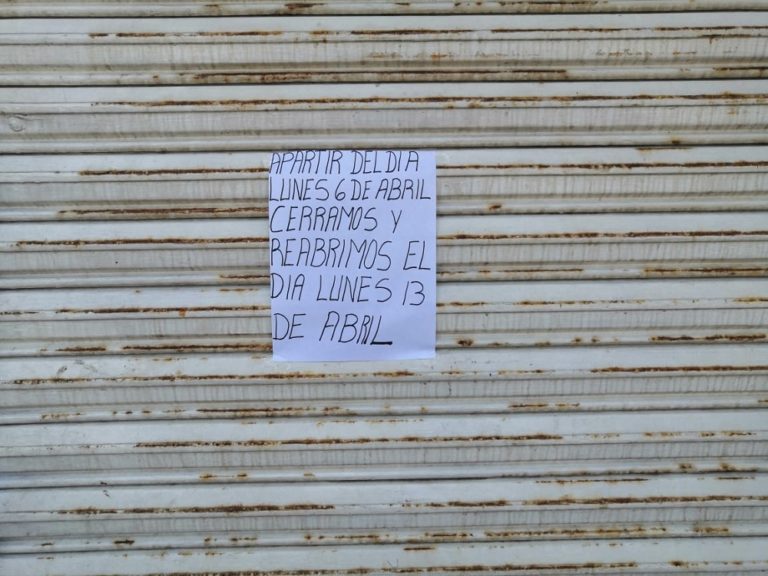 APARTIR DEL DIA
LUNES 6 DE ABRIL
CERRAMOS Y
REABRIMOS EL
DIA LUNES 13
DE ABRIL